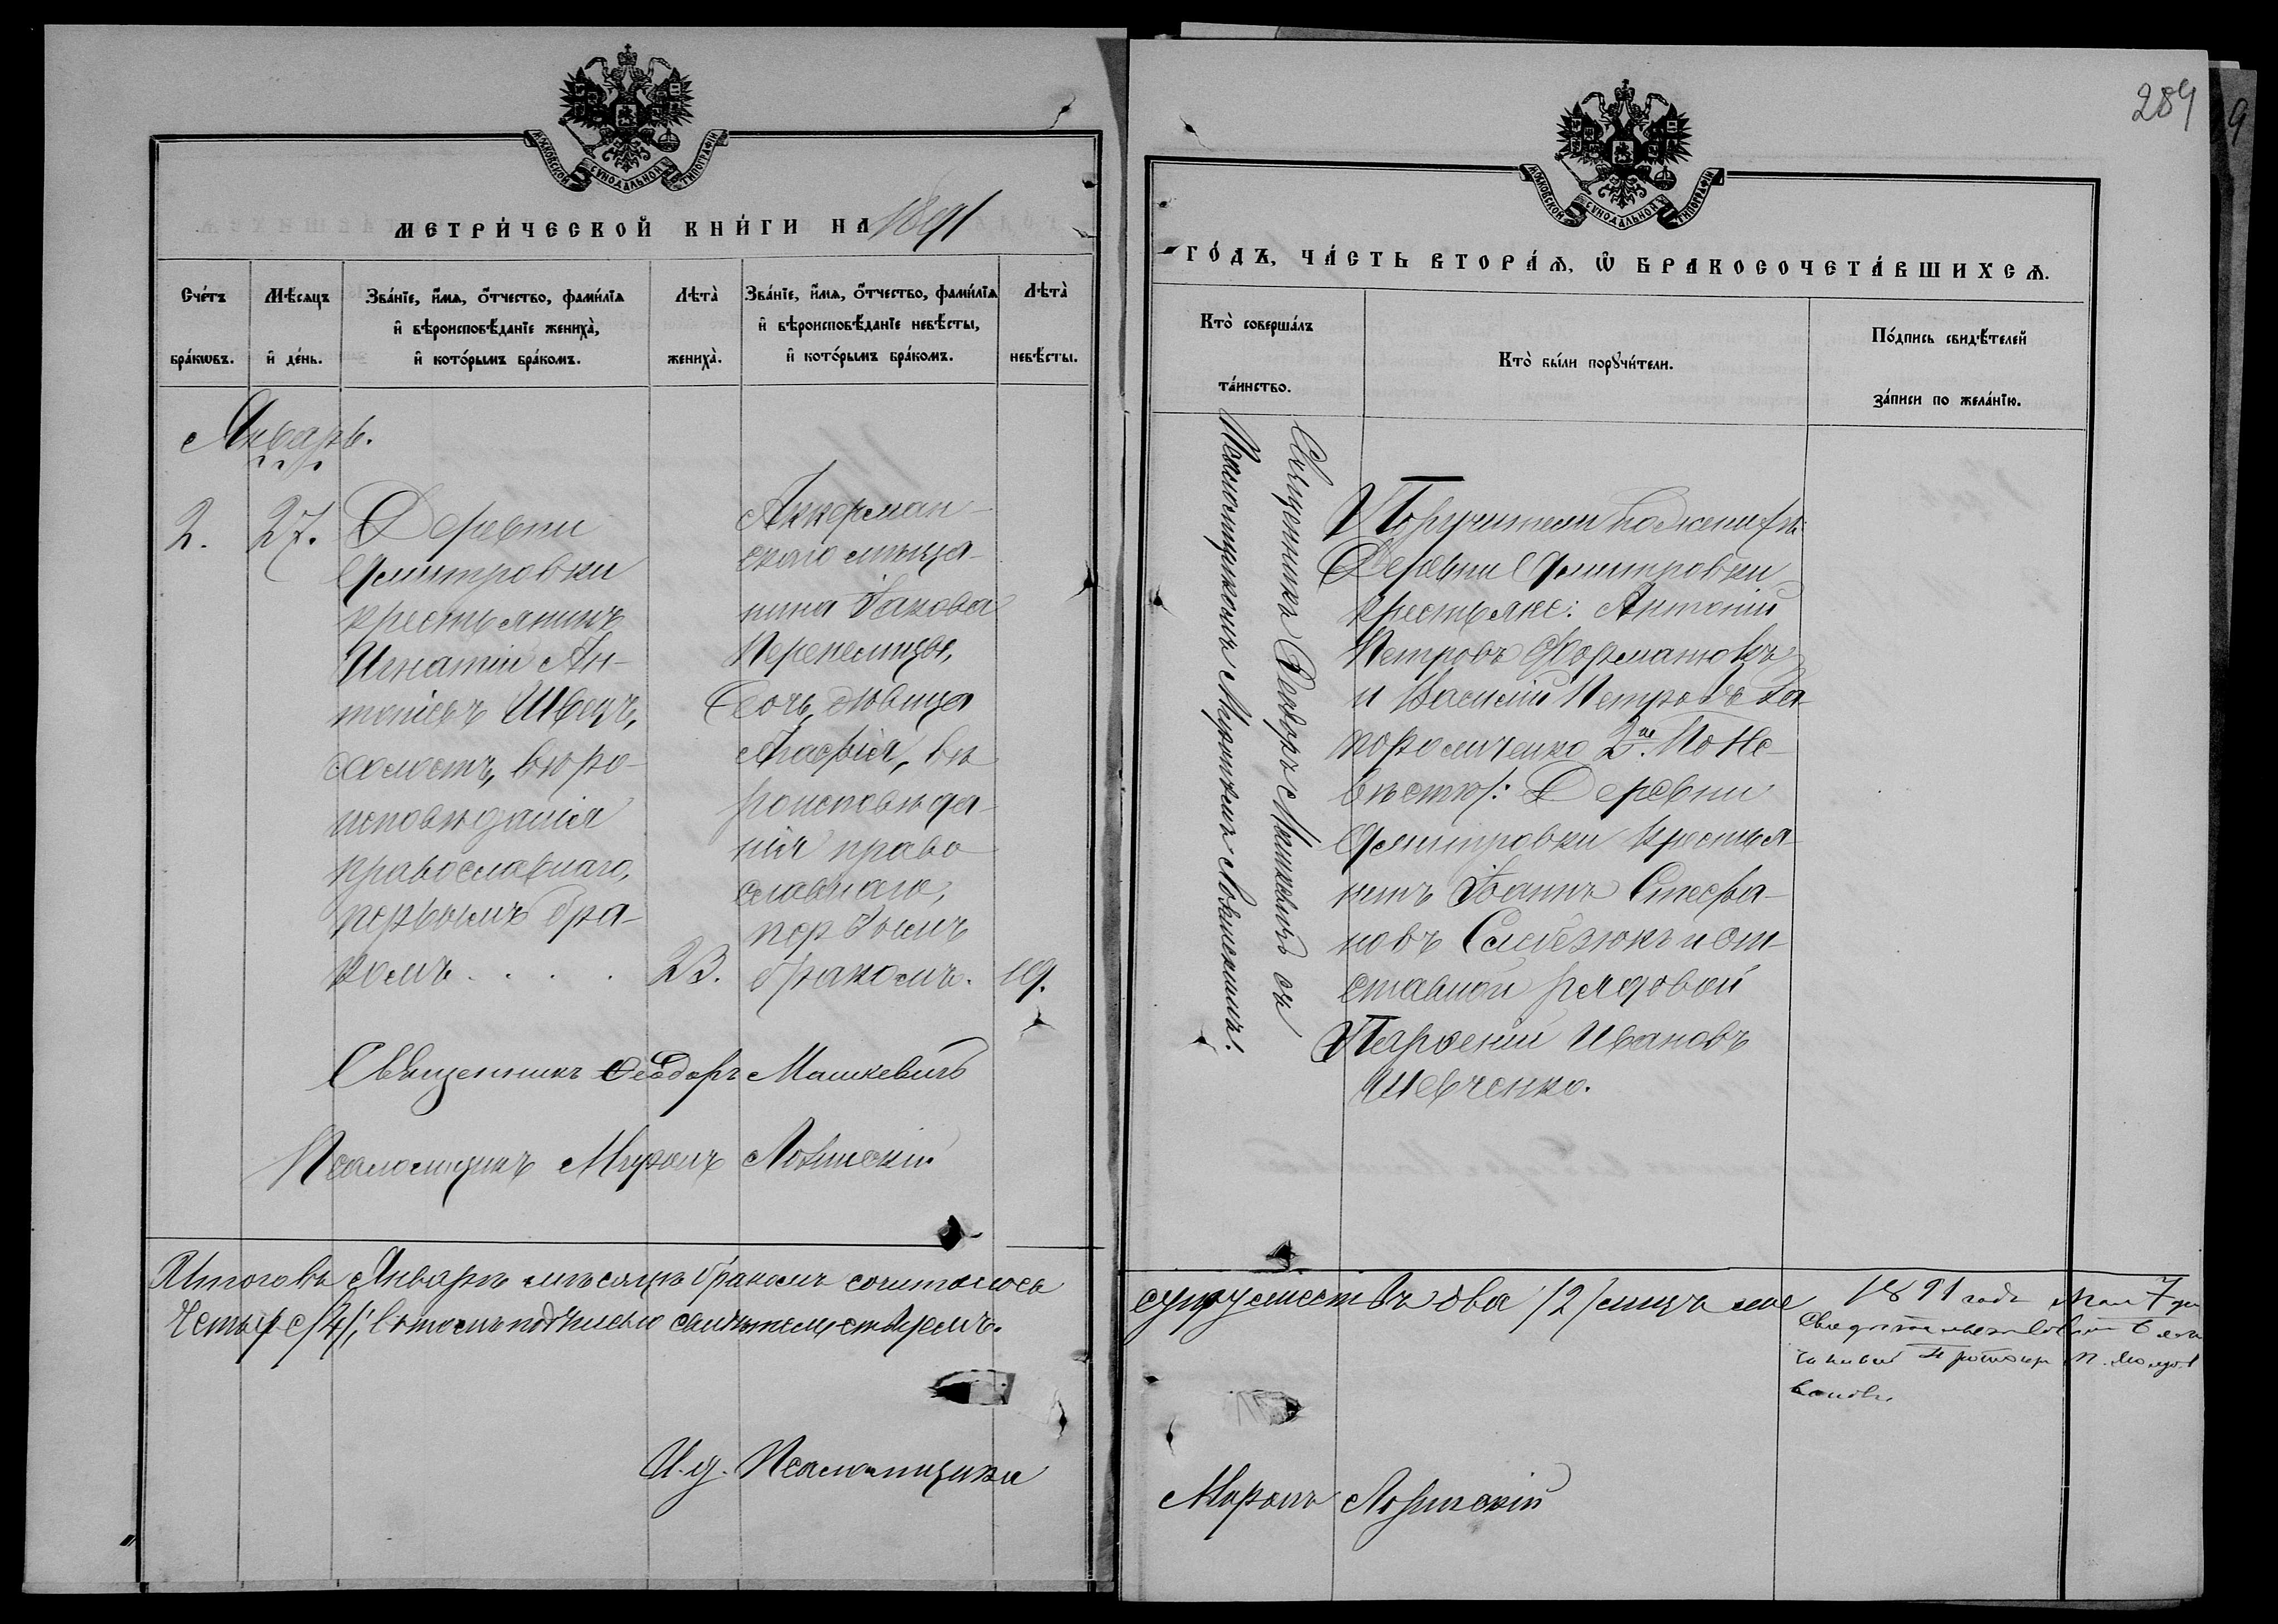 МОСКОВСКОЙ СѴНОДАЛЬНОЙ ТИПОГРАФІИ
МЕТРИ́ЧЕСКОЙ КНИ́ГИ НА 1891
Сче́тъ бра́кѡвъ.
Мѣ́сяцъ и де́нь.
Зва́нїе, и́мя, ѻ҆́тчество, фами́лїя
и вѣроисповѣ́данїе жениха̀,
и кото́рымъ бра́комъ.
Лѣта̀ жениха̀.
Зва́нїе, и́мя, ѻ҆́тчество, фами́лїя
и вѣроисповѣ́данїе невѣ́сты,
и кото́рымъ бра́комъ.
Лѣта̀ невѣ́сты.
Январь.
2.
27.
Деревни
Димитровки
крестьянинъ
Игнатій Ан-
тоніевъ Швецъ,
холостъ, вѣро-
исповѣданія
православнаго,
первымъ бра-
комъ . . . .
23.
Аккерман-
скаго мѣща-
нина Іакова
Перепелицы,
дочь, дѣвица
Агафія, вѣ
роисповѣда-
нія право
славнаго,
первымъ
бракомъ.
19.
Священникъ Ѳеодоръ Машкевичъ
Псаломщикъ Миронъ Лозинскій
Итого въ Январѣ мѣсяцѣ бракомъ сочиталось
Четыре /4/; въ томъ подписью свидѣтельствуемъ.
И. д. Псаломщика
289
9
МОСКОВСКОЙ СѴНОДАЛЬНОЙ ТИПОГРАФІИ
ГО́ДЪ, ЧА́СТЬ ВТОРА́Я, Ѡ БРАКОСОЧЕТА́ВШИХСЯ.
Кто̀ соверша́лъ
та́инство.
Кто̀ бы́ли порꙋчи́тели.
По́дпись свидѣ́телей
за́писи по жела́нїю.
Священникъ Ѳеодоръ Машкевичъ съ
Псаломщикомъ Мирономъ Лозинскимъ.
Поручители по женихѣ:
Деревни Димитровки
крестьяне: Антоній
Петровъ Фурманюкъ
и Василій Петровъ За-
порожченко 2е. По не-
вѣстѣ: Деревни
Димитровки крестья-
нинъ Іоаннъ Стефа-
новъ Слободзюкъ и от-
ставной рядовой
Парѳеній Ивановъ
Шевченко.
супружествъ два /2/
1891 года Мая 7 дня
Миронъ Лозинскій